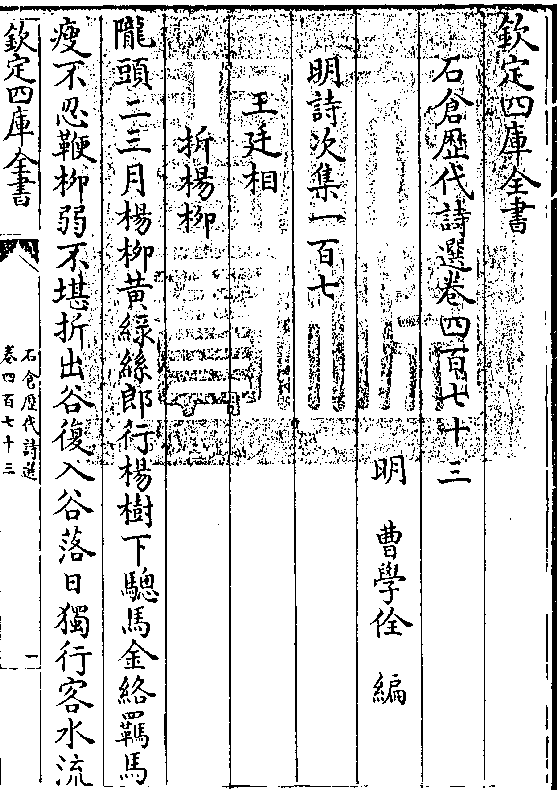 欽定四庫全書
石倉歴代詩選卷四百七十三
明　曹學佺　編
明詩次集一百七
王廷相
折楊柳
隴頭二三月楊柳黃緑絲郎行楊樹下驄馬金絡羈馬
瘦不忍鞭柳弱不堪折出谷復入谷落日獨行客水流
欽定四庫全書
石倉歴代詩選
卷四百七十三
一